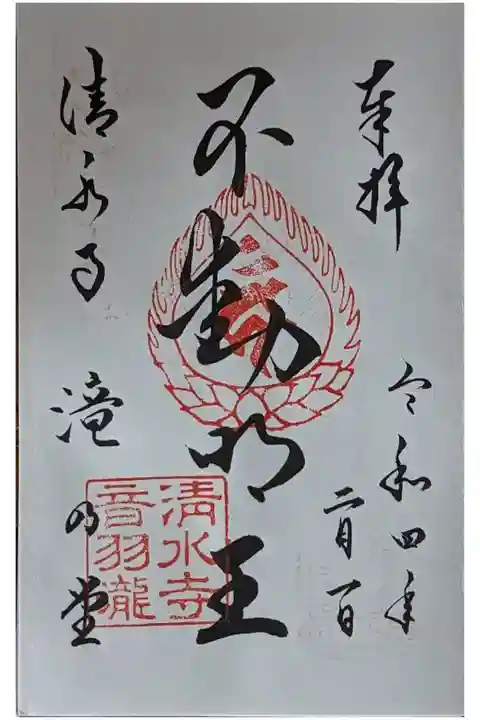 奉拝
令和四年
二月一日
不動明王
清水寺 滝乃堂
清水寺
音羽瀧